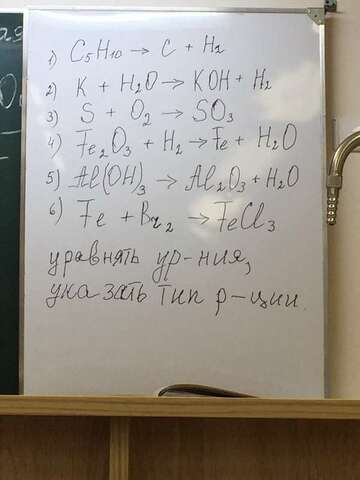 1) C5H10 → C + H2
2) K + H2O → KOH + H2
3) S + O2 → SO3
4) Fe2O3 + H2 → Fe + H2O
5) Al(OH)3 → Al2O3 + H2O
6) Fe + Br2 → FeCl3
уравнять ур-ния,
указать тип р-ции.